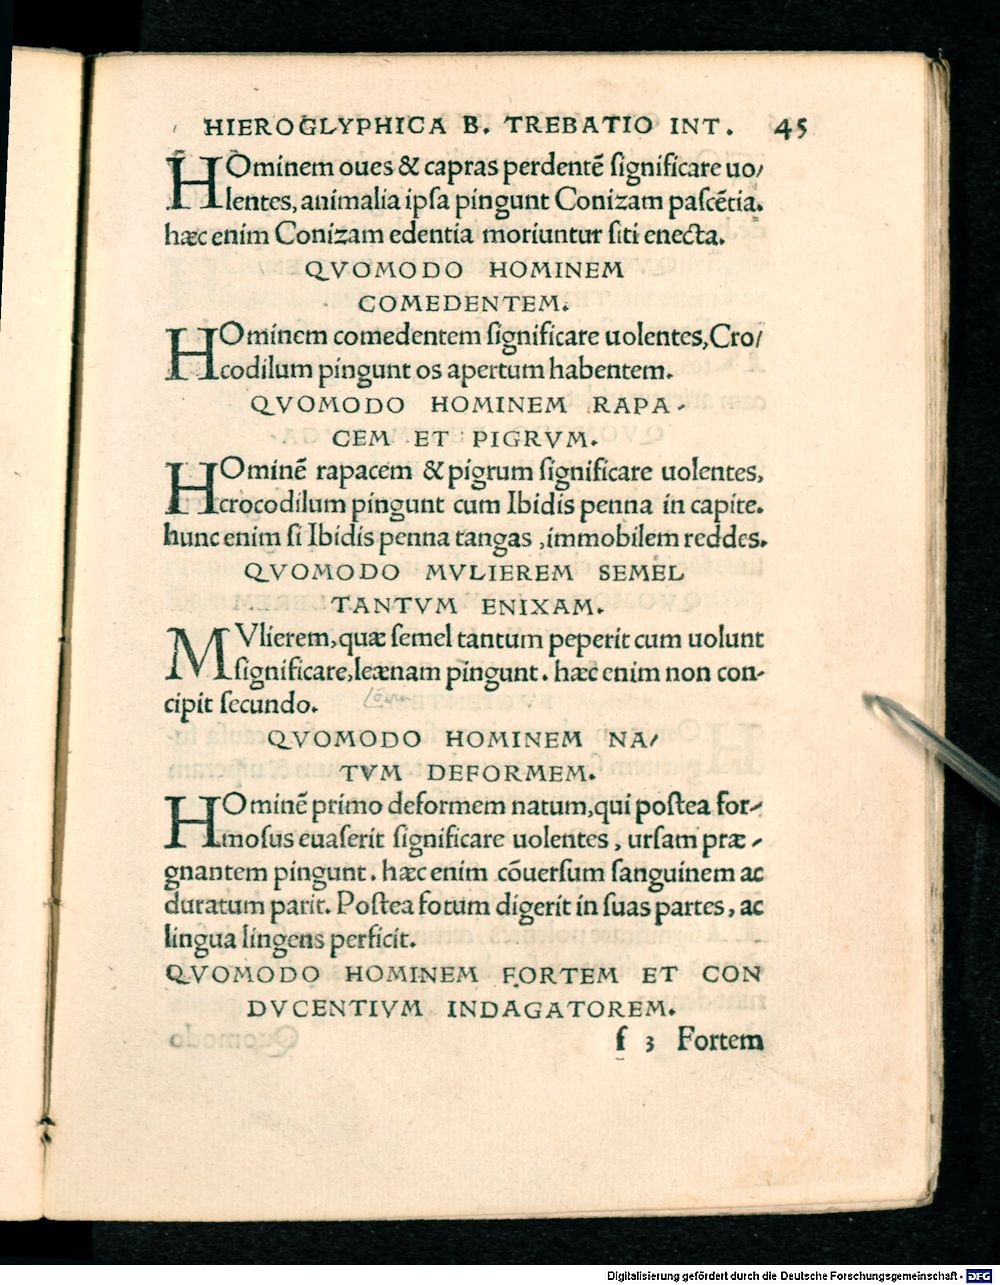 HIEROGLYPHICA B. TREBATIO INT. 45
HOminem oues & capras perdentē ſignificare uo/
lentes, animalia ipſa pingunt Conizam paſcētia.
hæc enim Conizam edentia moriuntur ſiti enecta.
QVOMODO HOMINEM
COMEDENTEM.
HOminem comedentem ſignificare uolentes, Cro/
codilum pingunt os apertum habentem.
QVOMODO HOMINEM RAPA-
CEM ET PIGRVM.
HOminē rapacem & pigrum ſignificare uolentes,
crocodilum pingunt cum Ibidis penna in capite.
hunc enim ſi Ibidis penna tangas ,immobilem reddes.
QVOMODO MVLIEREM SEMEL
TANTVM ENIXAM.
MVlierem, quæ ſemel tantum peperit cum uolunt
ſignificare, leænam pingunt. hæc enim non con-
cipit ſecundo.
QVOMODO HOMINEM NA/
TVM DEFORMEM.
HOminē primo deformem natum, qui poſtea for-
moſus euaſerit ſignificare uolentes, urſam præ-
gnantem pingunt. hæc enim cōuerſum ſanguinem ac
duratum parit. Poſtea fotum digerit in ſuas partes, ac
lingua lingens perficit.
QVOMODO HOMINEM FORTEM ET CON
DVCENTIVM INDAGATOREM.
f 3 Fortem
Digitalisierung gefördert durch die Deutsche Forschungsgemeinschaft - DFG